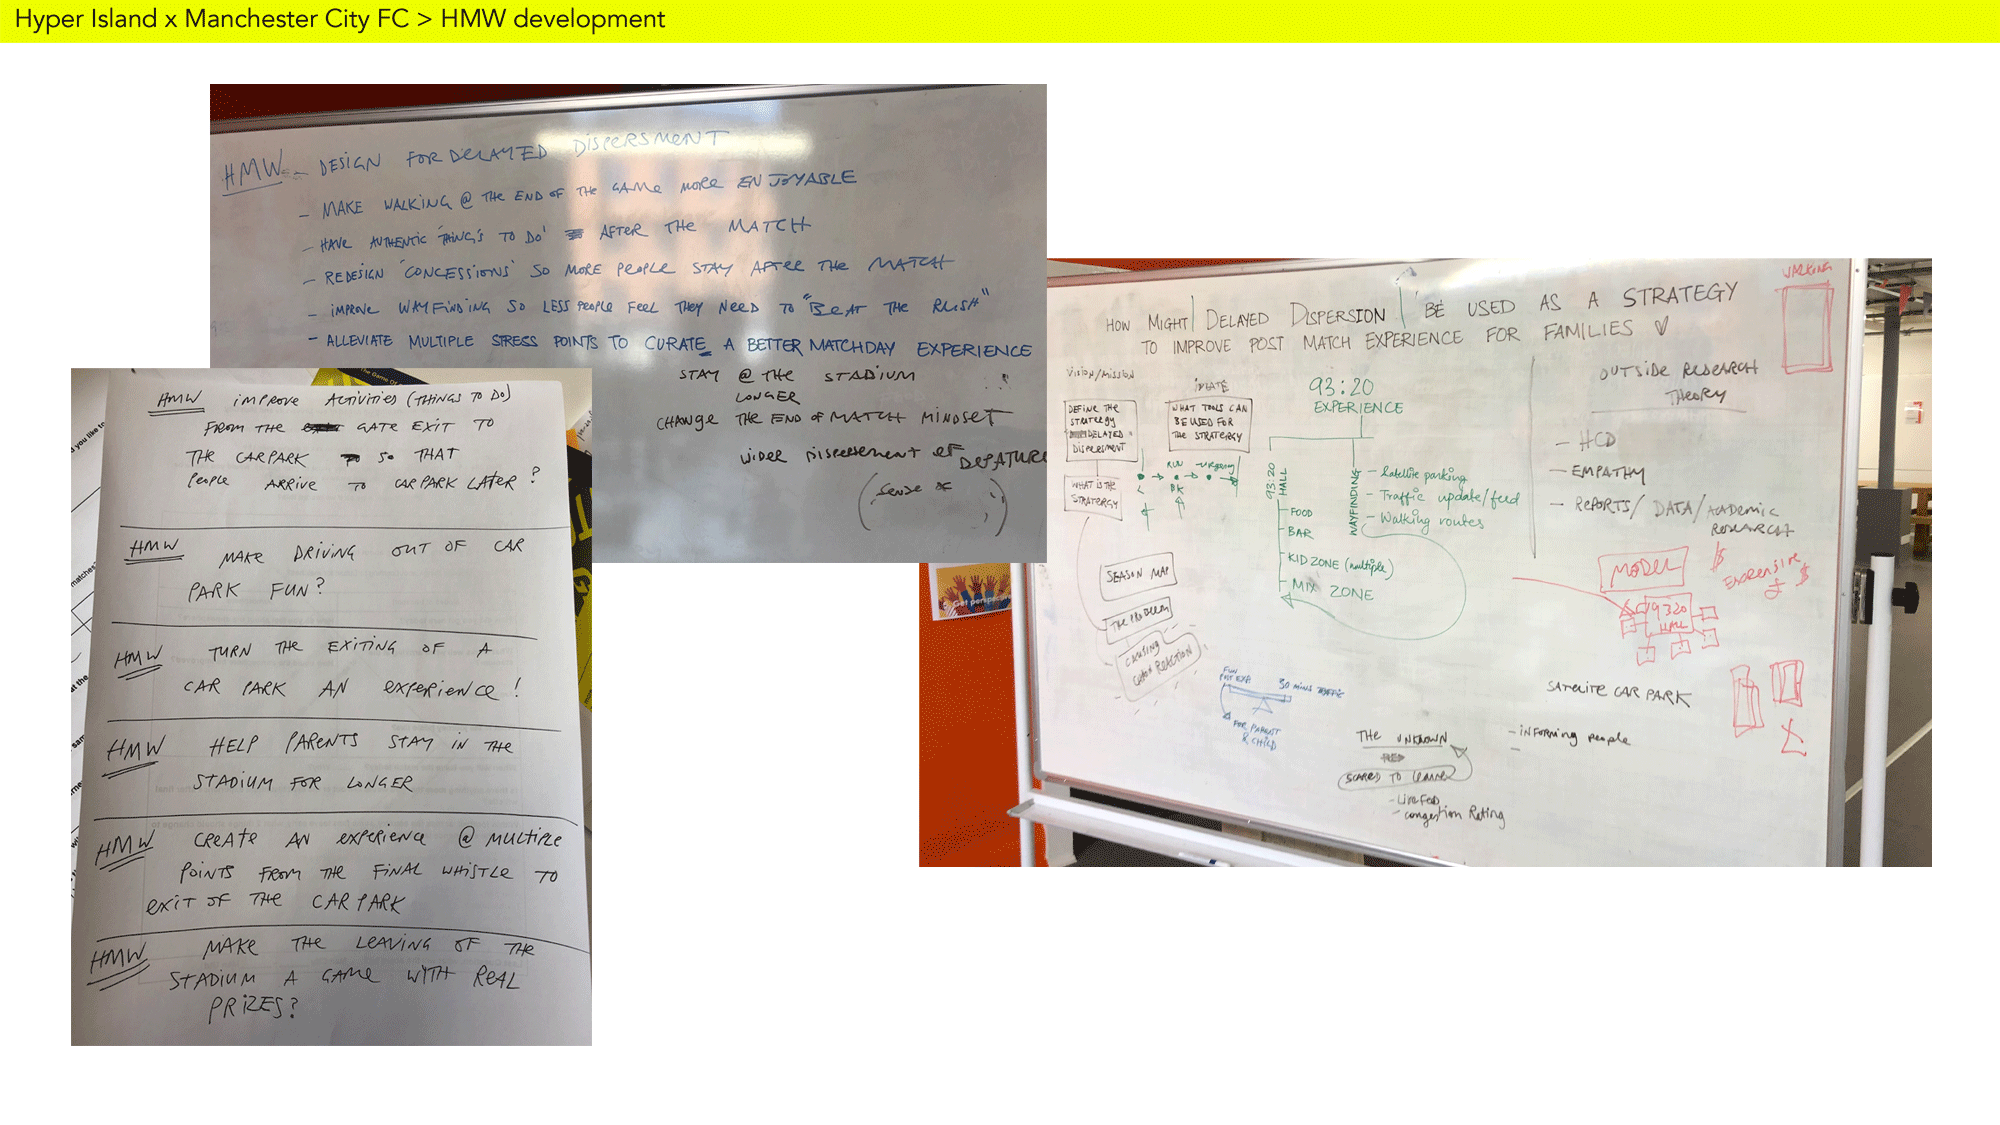 Hyper Island x Manchester City FC > HMW development
HMW - DESIGN FOR DELAYED DISPERSMENT
- MAKE WALKING @ THE END OF THE GAME MORE ENJOYABLE
- HAVE AUTHENTIC 'THING'S TO DO' AFTER THE MATCH
- REDESIGN 'CONCESSIONS' SO MORE PEOPLE STAY AFTER THE MATCH
- IMPROVE WAYFINDING SO LESS PEOPLE FEEL THEY NEED TO "BEAT THE RUSH"
- ALLEVIATE MULTIPLE STRESS POINTS TO CURATE A BETTER MATCHDAY EXPERIENCE
STAY @ THE STADIUM
LONGER
CHANGE THE END OF MATCH MINDSET
WIDER DISPERSEMENT OF DEPATURE
(Sense
HMW IMPROVE ACTIVITIES (THINGS TO DO)
FROM THE GATE EXIT TO
THE CARPARK SO THAT
PEOPLE ARRIVE TO CARPARK LATER?
HMW MAKE DRIVING OUT OF CAR
PARK FUN?
HMW TURN THE EXITING OF A
CAR PARK AN EXPERIENCE!
HMW HELP PARENTS STAY IN THE
STADIUM FOR LONGER
HMW CREATE AN EXPERIENCE @ MULTIPLE
POINTS FROM THE FINAL WHISTLE TO
EXIT OF THE CAR PARK
HMW MAKE THE LEAVING OF THE
STADIUM A GAME WITH REAL
PRIZES?
HOW MIGHT DELAYED DISPERSION BE USED AS A STRATEGY
TO IMPROVE POST MATCH EXPERIENCE FOR FAMILIES
WALKING
VISION/MISSION
DEFINE THE
STRATERGY
DELAYED
DISPERSMENT
WHAT IS THE
STRATERGY
IDEATE
WHAT TOOLS CAN
BE USED FOR
THE STRATERGY
RUN
SEASON MAP
THE PROBLEM
CAUSING
CHAIN REACTION
93:20
EXPERIENCE
93:20
HALL
- FOOD
- BAR
- KID ZONE (multiple)
- MIX ZONE
WAYFINDING
- Satellite parking
- Traffic update/feed
- Walking routes
FUN
POST EXP
30 MINS TRAFFIC
FOR PARENT
& CHILD
THE UNKNOWN
SCARED TO
- Live Feed
- congestion Rating
OUTSIDE RESEARCH
THEORY
- HCD
- EMPATHY
- REPORTS/ DATA/ ACADEMIC
RESEARCH
MODEL
EXPENSIVE
9320
HALL
SATELITE CAR PARK
- INFORMING people
Get perspective